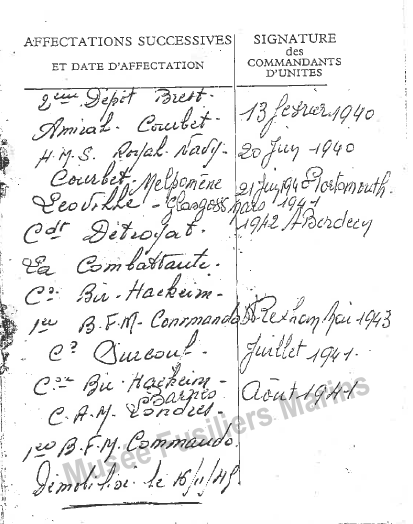 AFFECTATIONS SUCCESSIVES
ET DATE D'AFFECTATION
SIGNATURE
des
COMMANDANTS
D'UNITES
2ème Dépôt Brest.
13 février 1940
Amiral. Courbet.
20 Juin 1940
H.M.S. Royal Navy.
Courbet. Melpomène
21 Juin 1940 Portsmouth.
Léoville - Glasgow
mars 1941
Cdt Détroyat.
1942 ABerdeen
La Combattante.
Cie Bir-Hackeim.
1er B.F.M. Commando
Wrexham Mai 1943
Cie Surcouf.
Juillet 1941.
Cie Bir-Hackeim.
Août 1941
Barnes
C.A.M. Londres.
1er B.F.M. Commando
Démobilisé le 16/11/45
Musée Fusiliers Marins